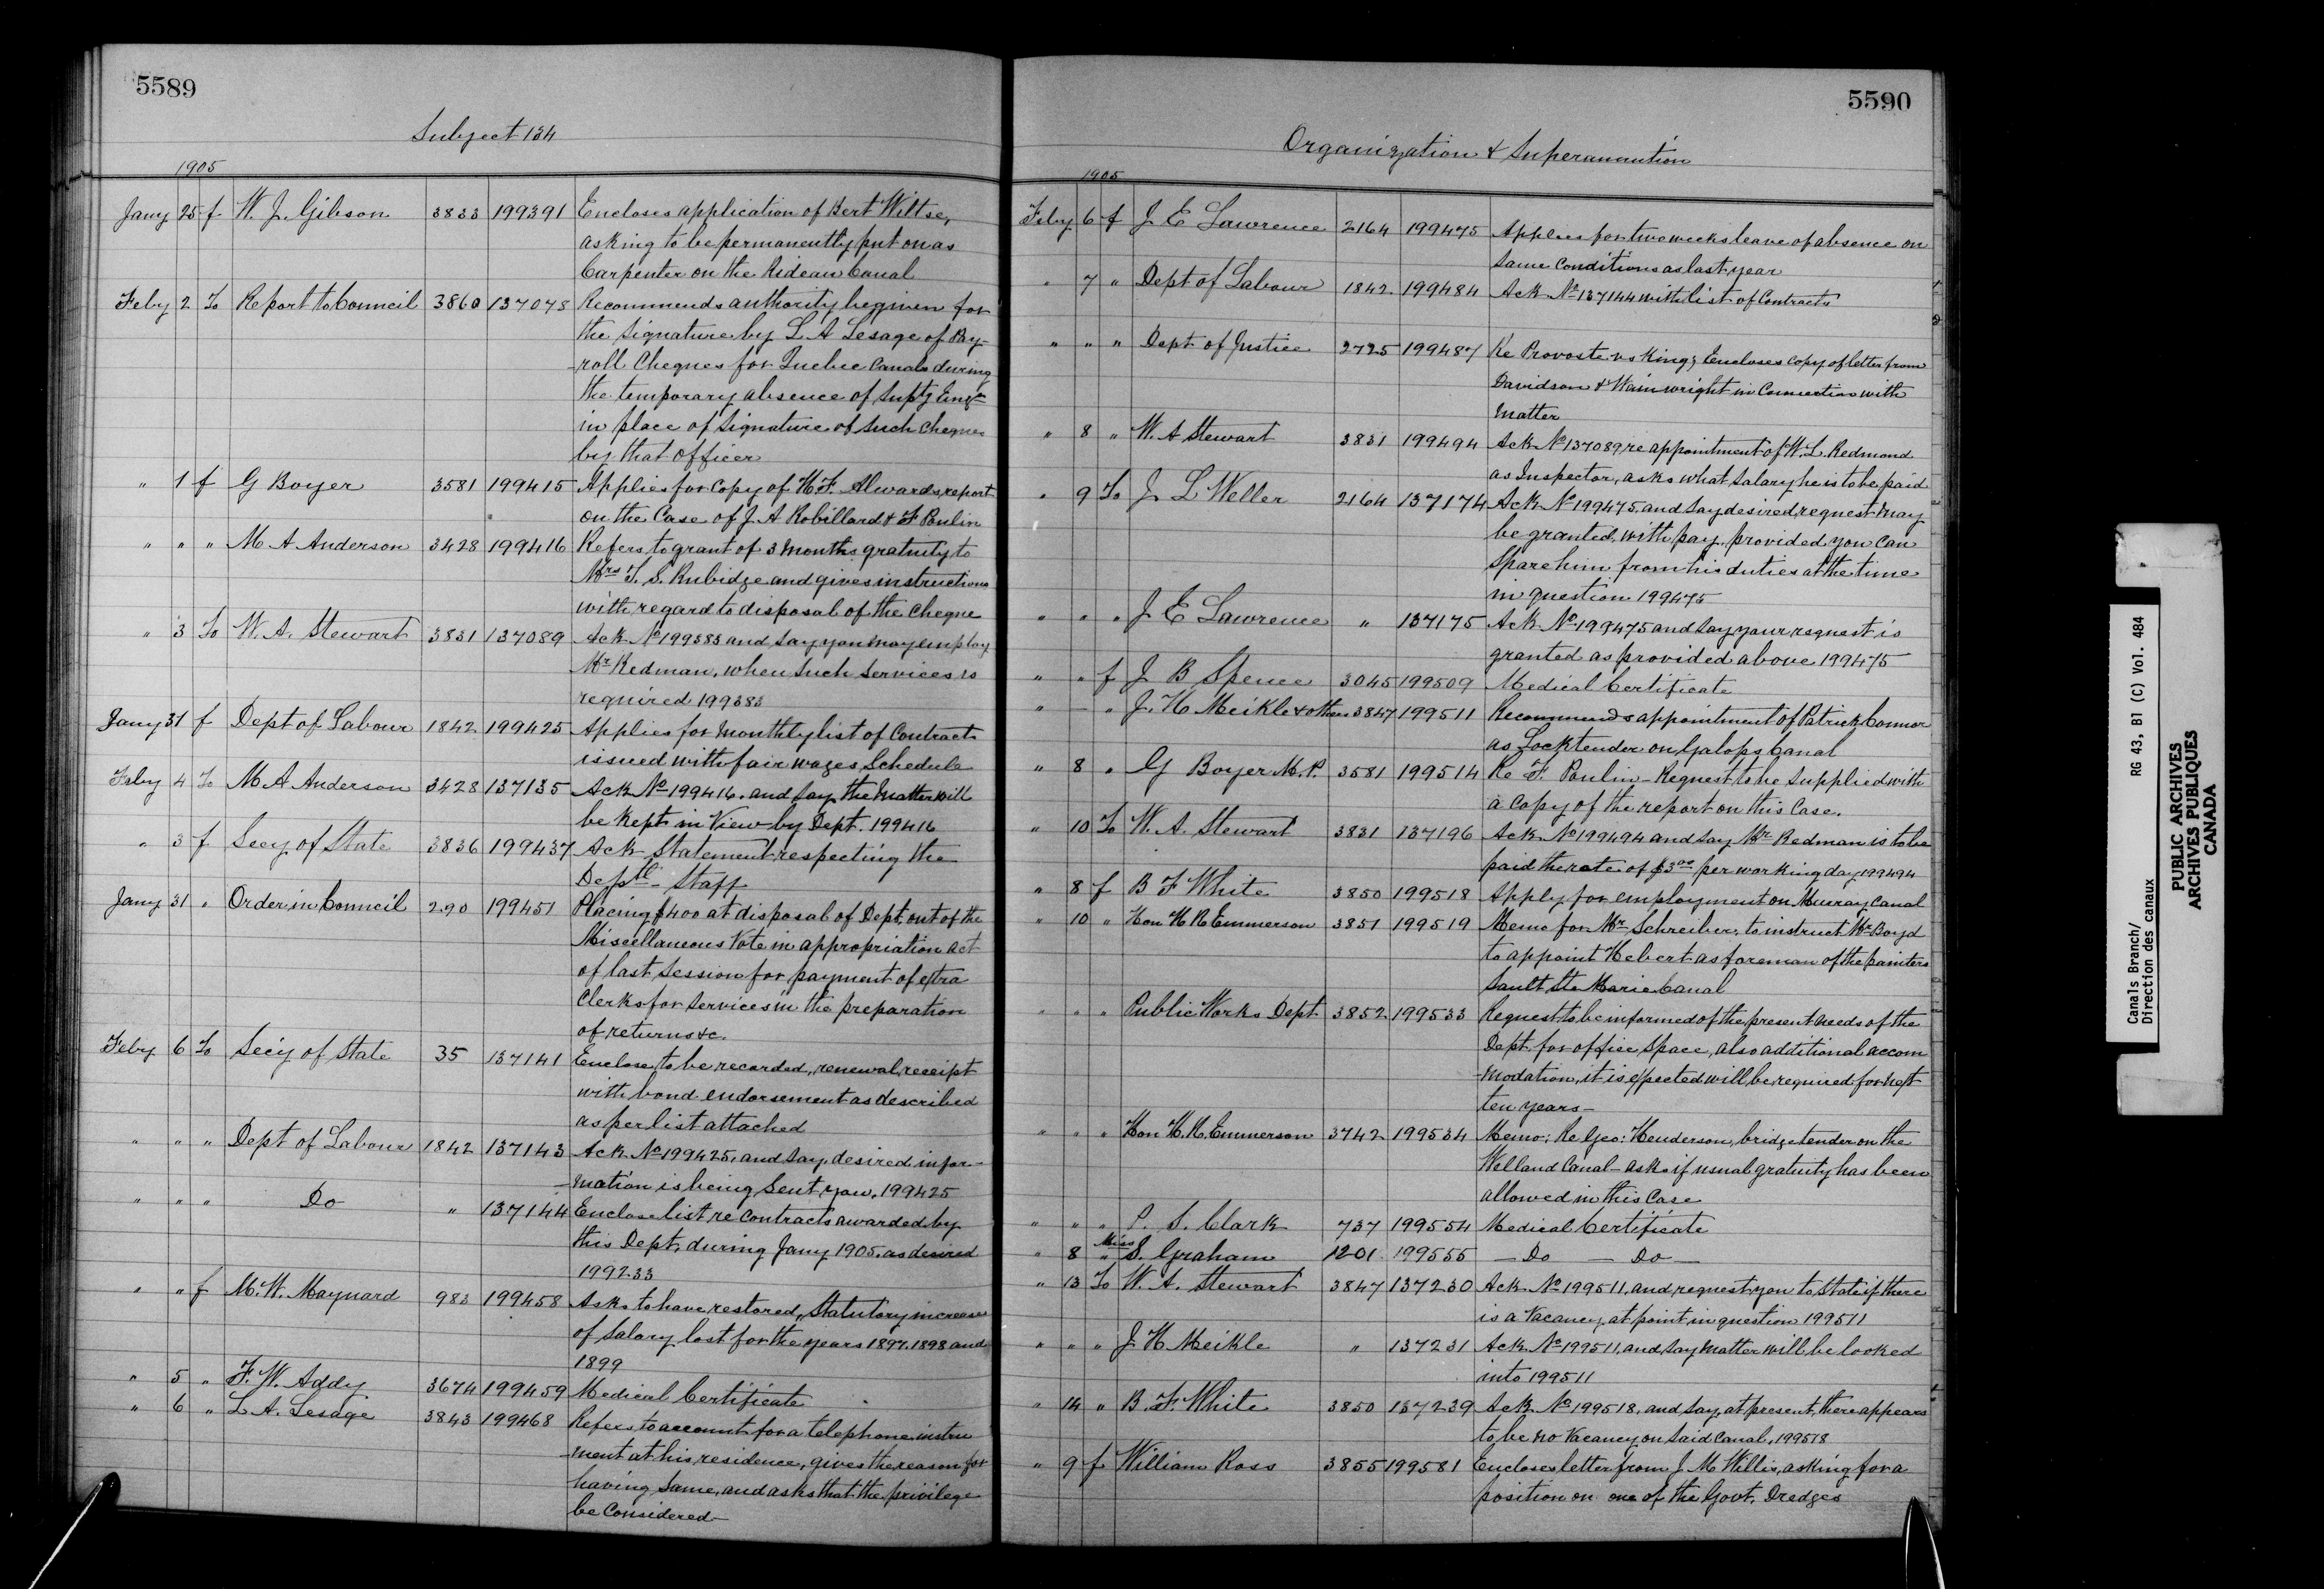 5589
Subject 134
1905
Jany 25 f W. J. Gibson 3833 199391 Encloses application of Bert Wiltse,
asking to be permanently put on as
Carpenter on the Rideau Canal
Feby 2 To Report to Council 3860 137078 Recommends authority be given for
the signature by L A Lesage of Pay-
-roll Cheques for Quebec Canals during
the temporary absence of Suptg Engr
in place of signature of such cheques
by that officer
" 1 f G Boyer 3581 199415 Applies for copy of H. F. Alwards report
on the Case of J. A Robillard & F Paulin
" " " M A Anderson 3428 199416 Refers to grant of 3 months gratuity to
Mrs T. S. Rubidge and gives instructions
with regard to disposal of the cheque
" 3 To W. A. Stewart 3831 137089 Ack No 199383 and say you may employ
Mr Redman, when such services is
required 199383
Jany 31 f Dept of Labour 1842 199425 Applies for monthly list of Contracts
issued with fair wages Schedule
Feby 4 To M A Anderson 3428 137135 Ack No 199416. and say the matter will
be kept in View by Dept. 199416
" 3 f Secy of State 3836 199437 Ack Statement respecting the
Deptl - Staff
Jany 31 " Order in Council 290 199451 Placing $400 at disposal of Dept out of the
Miscellaneous Vote in appropriation act
of last session for payment of extra
Clerks for services in the preparation
of returns &c.
Feby 6 To Secy of State 35 137141 Enclose to be recorded, renewal receipt
with bond endorsement as described
as per list attached
" " " Dept of Labour 1842 137143 Ack No 199425, and say desired infor-
-mation is being sent you. 199425
" " " Do " 137144 Enclose list re contracts awarded by
this Dept, during Jany 1905. as desired
199233
" " f M. W. Maynard 983 199458 Asks to have restored, Statutory increase
of salary lost for the years 1897. 1898 and
1899
" 5 " F. W. Addy 3674 199459 Medical Certificate
" 6 " L. A. Lesage 3843 199468 Refers to account for a telephone instru
-ment at his residence, gives the reason for
having same, and asks that the privilege
be considered-
5590
Organization & Superannution
1905
Feby 6 f J E Lawrence 2164 199475 Applies for two weeks leave of absence on
same conditions as last year
" 7 " Dept of Labour 1842 199484 Ack No 137144 with list of Contracts
" " " Dept of Justice 2725 199487 Re Provoste vs King; Encloses copy of letter from
Davidson & Wainwright in Connection with
matter
" 8 " W. A Stewart 3831 199494 Ack No 137089 re appointment of W. L. Redmond
as Inspector, asks what salary he is to be paid
" 9 To J. L Weller 2164 137174 Ack No 199475, and say desired request may
be granted, with pay, provided you can
spare him from his duties at the time
in question 199475
" " " J E Lawrence " 137175 Ack No 199475 and say your request is
granted as provided above 199475
" " f J B Spence 3045 199509 Medical Certificate
" - " J. H Meikle & others 3847 199511 Recommends appointment of Patrick Connor
as Locktender on Galops Canal
" 8 " G Boyer M. P. 3581 199514 Re F. Paulin - Request to be supplied with
a copy of the report on this case.
" 10 To W. A. Stewart 3831 137196 Ack No 199494 and say Mr Redman is to be
paid the rate of $3.00 per working day 199494
" 8 f B F White 3850 199518 Apply for employment on Murray Canal
" 10 " Hon H R Emmerson 3851 199519 Memo for Mr Schreiber, to instruct Mr Boyd
to appoint Hebert as foreman of the painters
Sault Ste Marie Canal
" " " Public Works Dept 3852 199533 Request to be informed of the present needs of the
Dept. for office space, also additional accom
-modation, it is expected will be required for next
ten years-
" " " Hon H. R. Emmerson 3742 199534 Memo: Re Geo: Henderson, bridgetender on the
Welland Canal - ask if usual gratuity has been
allowed in this case
" " " P. S. Clark 737 199554 Medical Certificate
" 8 " Miss S. Graham 1201 199555 - Do - Do -
" 13 To W. A. Stewart 3847 137230 Ack No 199511, and request you to state if there
is a vacancy at point in question 199511
" " " J H Meikle " 137231 Ack No 199511, and say matter will be looked
into 199511
" 14 " B. F White 3850 137239 Ack No 199518, and say, at present, there appears
to be no vacancy on said Canal, 199518
" 9 f William Ross 3855 199581 Encloses letter from J. M Willis, asking for a
position on one of the Govt. Dredges
Canals Branch/ RG 43, B1 (C) Vol. 484
Direction des canaux
PUBLIC ARCHIVES
ARCHIVES PUBLIQUES
CANADA